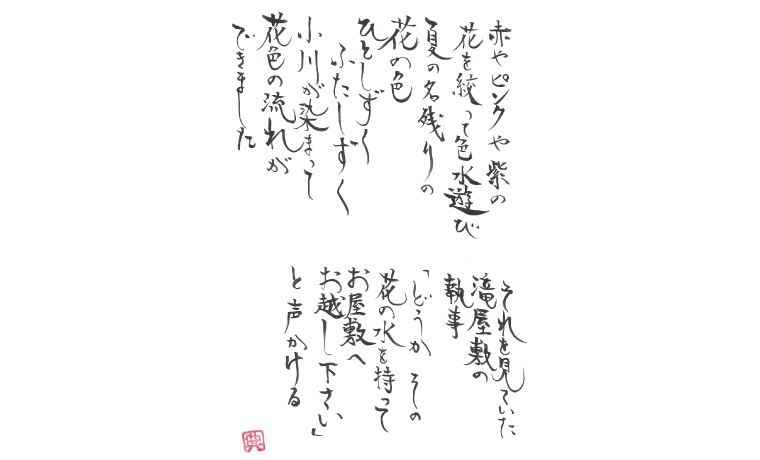 赤やピンクや紫の
花を絞って色水遊び
夏の名残りの
花の色
ひとしずく
ふたしずく
小川が染まって
花色の流れが
できました
それを見ていた
滝屋敷の
執事
「どうか その
花の水を持って
お屋敷へ
お越し下さい」
と声かける